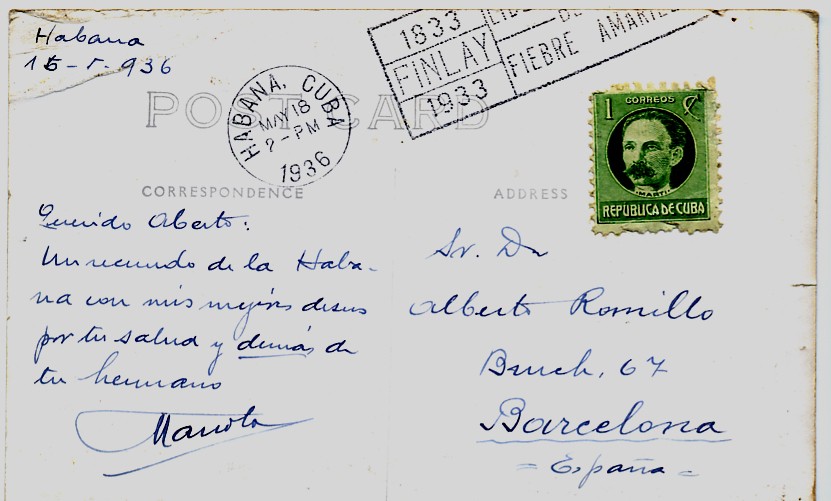 Habana
15-V-936
1833
FINLAY
1933
FIEBRE AMARILL
POST CARD
HABANA, CUBA
MAY 18
2-PM
1936
CORREOS
1 ¢
MARTI
REPUBLICA DE CUBA
CORRESPONDENCE
ADDRESS
Querido Alberto:
Un recuerdo de la Haba-
na con mis mejores deseos
por tu salud y demás de
tu hermano
Manolo
Sr. Dn
Alberto Romillo
Bruch, 67
Barcelona
= España =